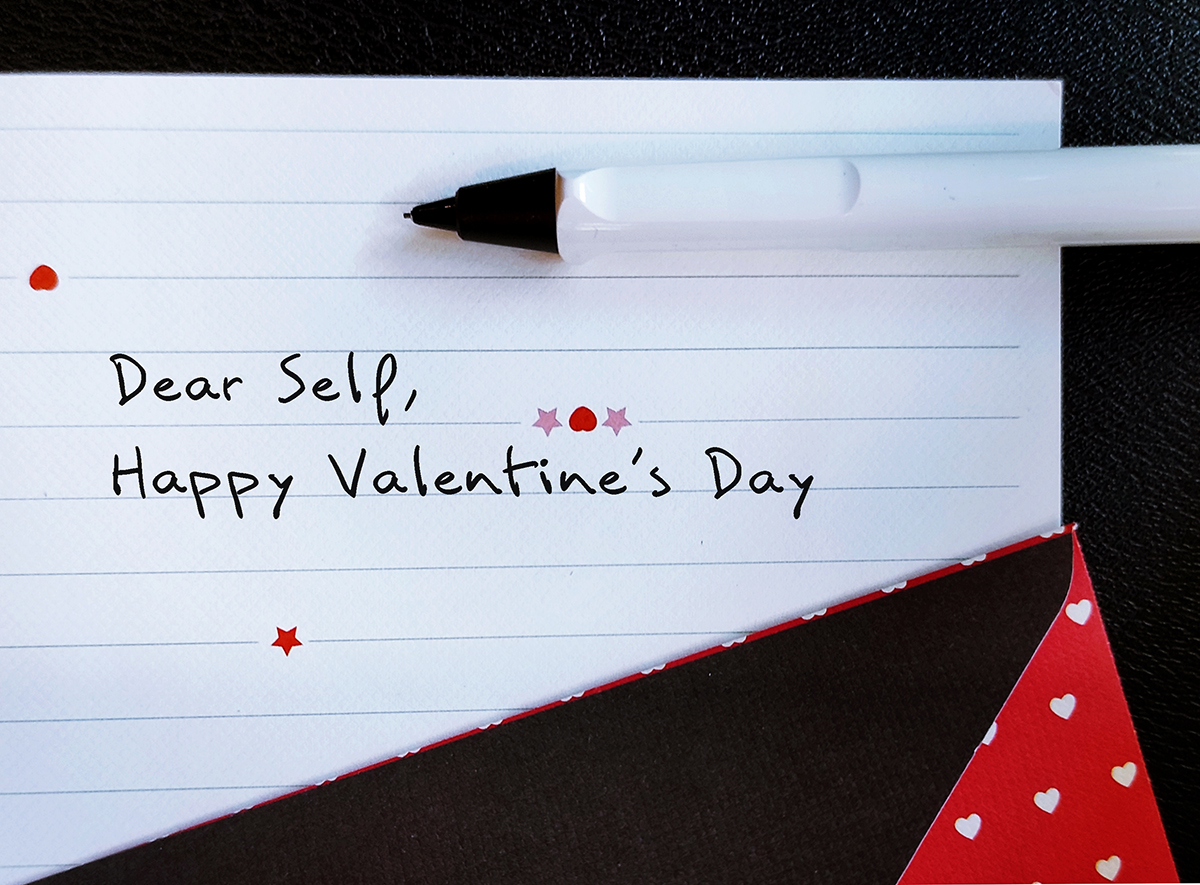 Dear Self,
Happy Valentine's Day